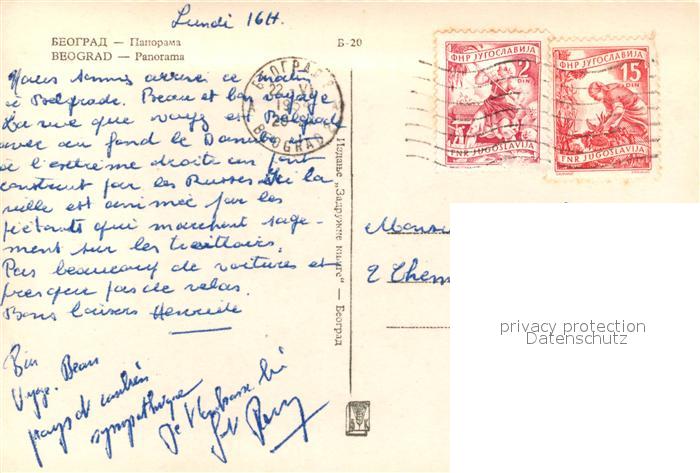 Lundi 16H.
БЕОГРАД — Панорама
BEOGRAD — Panorama
Б-20
Nous sommes arrivés ce matin
à Belgrade. Beau et bon voyage
La vue que voyez est Belgrade
avec au fond le Danube et
à l'extrême droite un pont
construit par les Russes. Ici la
ville est animée par les
piétons qui marchent sage-
ment sur les trottoirs.
Pas beaucoup de voitures et
presque pas de vélos.
Bons baisers Henriette
Bon
Voyage. Beau
pays et
sympathique
Je t'embrasse
БЕОГРАД
BEOGRAD
ФНР ЈУГОСЛАВИЈА
2
DIN
FNR JUGOSLAVIJA
ФНР ЈУГОСЛАВИЈА
15
DIN
FNR JUGOSLAVIJA
Издање „Задружне књиге" — Београд
2
privacy protection
Datenschutz